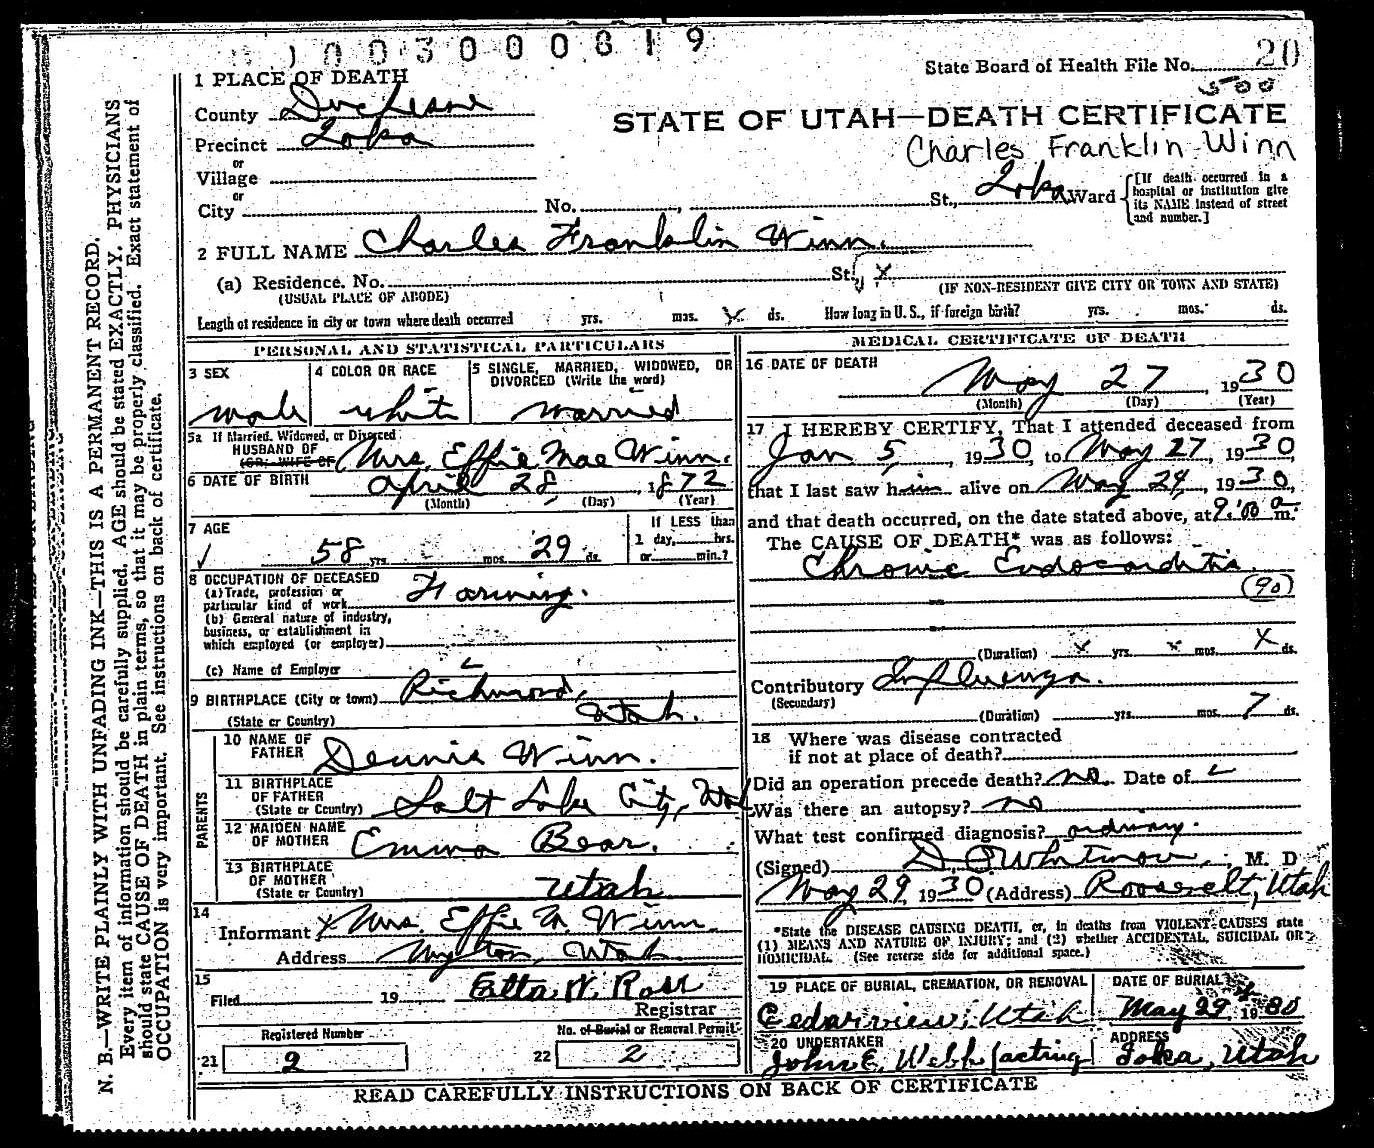 1003000819
20
State Board of Health File No.
500
1 PLACE OF DEATH
County Duchesne
STATE OF UTAH—DEATH CERTIFICATE
Precinct Ioka
Charles Franklin Winn
or
Village
or
City No. , St., Ioka Ward
[If death occurred in a hospital or institution give its NAME instead of street and number.]
2 FULL NAME Charles Franklin Winn.
(a) Residence. No. St. X
(USUAL PLACE OF ABODE) (IF NON-RESIDENT GIVE CITY OR TOWN AND STATE)
Length of residence in city or town where death occurred yrs. mos. ds. How long in U. S., if foreign birth? yrs. mos. ds.
PERSONAL AND STATISTICAL PARTICULARS
3 SEX 4 COLOR OR RACE 5 SINGLE, MARRIED, WIDOWED, OR DIVORCED (Write the word)
male white married
5a If Married, Widowed, or Divorced
HUSBAND OF
(OR) WIFE OF Mrs. Effie Mae Winn.
6 DATE OF BIRTH April 28, 1872
(Month) (Day) (Year)
7 AGE If LESS than
58 yrs. mos. 29 ds. 1 day, hrs.
or min.?
8 OCCUPATION OF DECEASED
(a) Trade, profession or
particular kind of work Farming.
(b) General nature of industry,
business, or establishment in
which employed (or employer)
(c) Name of Employer
9 BIRTHPLACE (City or town) Richmond,
(State or Country) Utah.
PARENTS
10 NAME OF
FATHER Dennis Winn.
11 BIRTHPLACE
OF FATHER
(State or Country) Salt Lake City, Utah
12 MAIDEN NAME
OF MOTHER Emma Bear.
13 BIRTHPLACE
OF MOTHER
(State or Country) Utah
14
Informant X Mrs. Effie M. Winn.
Address Myton, Utah.
15
Filed 19 Etta W. Ross
Registrar
Registered Number No. of Burial or Removal Permit
21 2 22 2
MEDICAL CERTIFICATE OF DEATH
16 DATE OF DEATH
May 27, 1930
(Month) (Day) (Year)
17 I HEREBY CERTIFY, That I attended deceased from
Jan 5, 1930, to May 27, 1930,
that I last saw him alive on May 24, 1930,
and that death occurred, on the date stated above, at 9:00 a m.
The CAUSE OF DEATH* was as follows:
Chronic Endocarditis.
(90)
(Duration) X yrs. X mos. X ds.
Contributory Influenza.
(Secondary)
(Duration) yrs. mos. 7 ds.
18 Where was disease contracted
if not at place of death?
Did an operation precede death? no. Date of
Was there an autopsy? no
What test confirmed diagnosis? ordinary.
(Signed) Whitmore, M. D
May 29, 1930 (Address) Roosevelt, Utah
*State the DISEASE CAUSING DEATH, or, in deaths from VIOLENT CAUSES state
(1) MEANS AND NATURE OF INJURY; and (2) whether ACCIDENTAL, SUICIDAL OR
HOMICIDAL. (See reverse side for additional space.)
19 PLACE OF BURIAL, CREMATION, OR REMOVAL DATE OF BURIAL
Cedarview, Utah May 29, 1930
20 UNDERTAKER ADDRESS
John E. Webb (acting) Ioka, Utah
READ CAREFULLY INSTRUCTIONS ON BACK OF CERTIFICATE
N. B.—WRITE PLAINLY WITH UNFADING INK—THIS IS A PERMANENT RECORD.
Every item of information should be carefully supplied. AGE should be stated EXACTLY. PHYSICIANS
should state CAUSE OF DEATH in plain terms, so that it may be properly classified. Exact statement of
OCCUPATION is very important. See instructions on back of certificate.